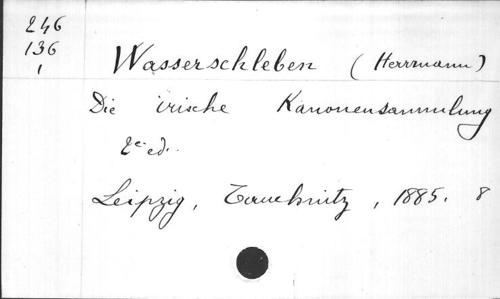 246
136
1
Wasserschleben (Herrmann)
Die irische Kanonensammlung
2e ed.
Leipzig, Tauchnitz, 1885. 8